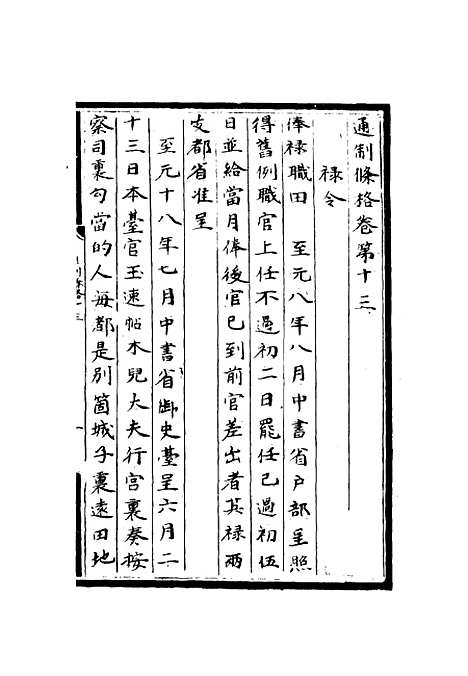 通制條格卷第十三
祿令
俸祿職田　至元八年八月中書省户部呈照
得舊例職官上任不過初二日罷任已過初伍
日並給當月俸後官已到前官差出者其祿兩
支都省准呈
至元十八年七月中書省御史臺呈六月二
十三日本臺官玉速帖木兒大夫行宮裏奏按
察司裏勾當的人每都是別箇城子裏遠田地